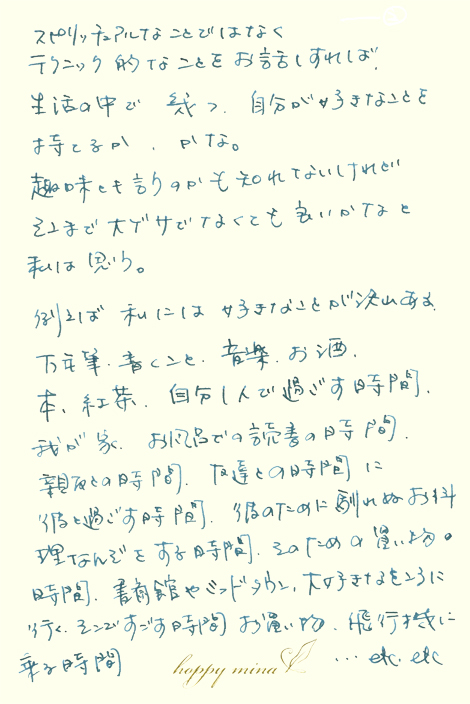 スピリッチュアルなことではなく
テクニック的なことをお話しすれば、
生活の中で 幾つ、自分が好きなことを
持てるか、かな。
趣味とも言うのかも知れないけれど
そこまで大ゲサでなくても良いかなと
私は思う。
例えば 私には 好きなことが沢山ある
万年筆、書くこと、音楽、お酒、
本、紅茶、自分1人で過ごす時間、
我が家、お風呂での読書の時間、
親友との時間、友達との時間に
彼と過ごす時間、彼のために馴れぬお料
理なんぞをする時間、そのための買い物の
時間、図書館やミッドタウン、大好きなところに
行く、そこですごす時間 お買い物、飛行機に
乗る時間 … etc. etc
happy mina